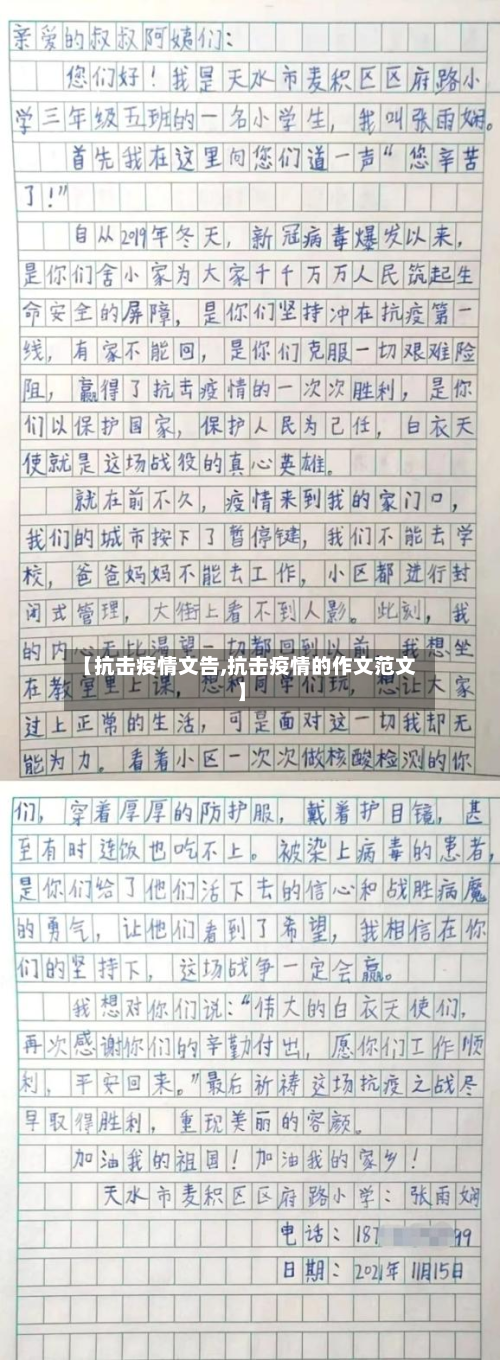 亲爱的叔叔阿姨们：
您们好！我是天水市麦积区区府路小
学三年级五班的一名小学生，我叫张雨娴。
首先我在这里向您们道一声“您辛苦
了！”
自从2019年冬天，新冠病毒爆发以来，
是你们舍小家为大家千千万万人民筑起生
命安全的屏障，是你们坚持冲在抗疫第一
线，有家不能回，是你们克服一切艰难险
阻，赢得了抗击疫情的一次次胜利，是你
们以保护国家，保护人民为己任，白衣天
使就是这场战役的真心英雄。
就在前不久，疫情来到我的家门口，
我们的城市按下了暂停键，我们不能去学
校，爸爸妈妈不能去工作，小区都进行封
闭式管理，大街上看不到人影。此刻，我
的内心无比渴望一切都回到以前，我想坐
【抗击疫情文告,抗击疫情的作文范文
】
在教室里上课，想和同学们玩，想让大家
过上正常的生活，可是面对这一切我却无
能为力。看着小区一次次做核酸检测的你
们，穿着厚厚的防护服，戴着护目镜，甚
至有时连饭也吃不上。被染上病毒的患者，
是你们给了他们活下去的信心和战胜病魔
的勇气，让他们看到了希望，我相信在你
们的坚持下，这场战争一定会赢。
我想对你们说：“伟大的白衣天使们，
再次感谢你们的辛勤付出，愿你们工作顺
利，平安回来。”最后祈祷这场抗疫之战尽
早取得胜利，重现美丽的容颜。
加油我的祖国！加油我的家乡！
天水市麦积区区府路小学：张雨娴
电话：187 99
日期：2021年11月15日